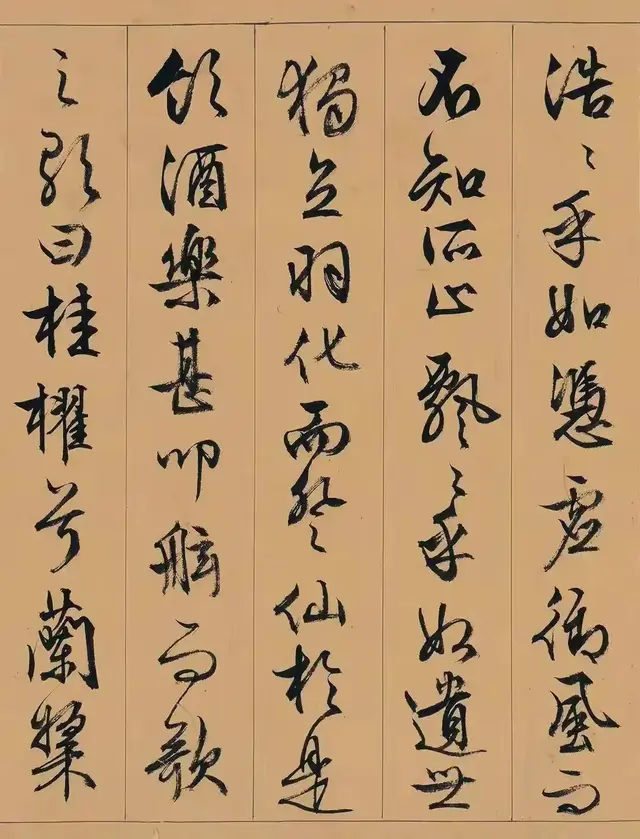 浩〻乎如憑虛御風而
不知所止飄〻乎如遺世
獨立羽化而登仙於是
飲酒樂甚叩舷而歌
之歌曰桂櫂兮蘭槳